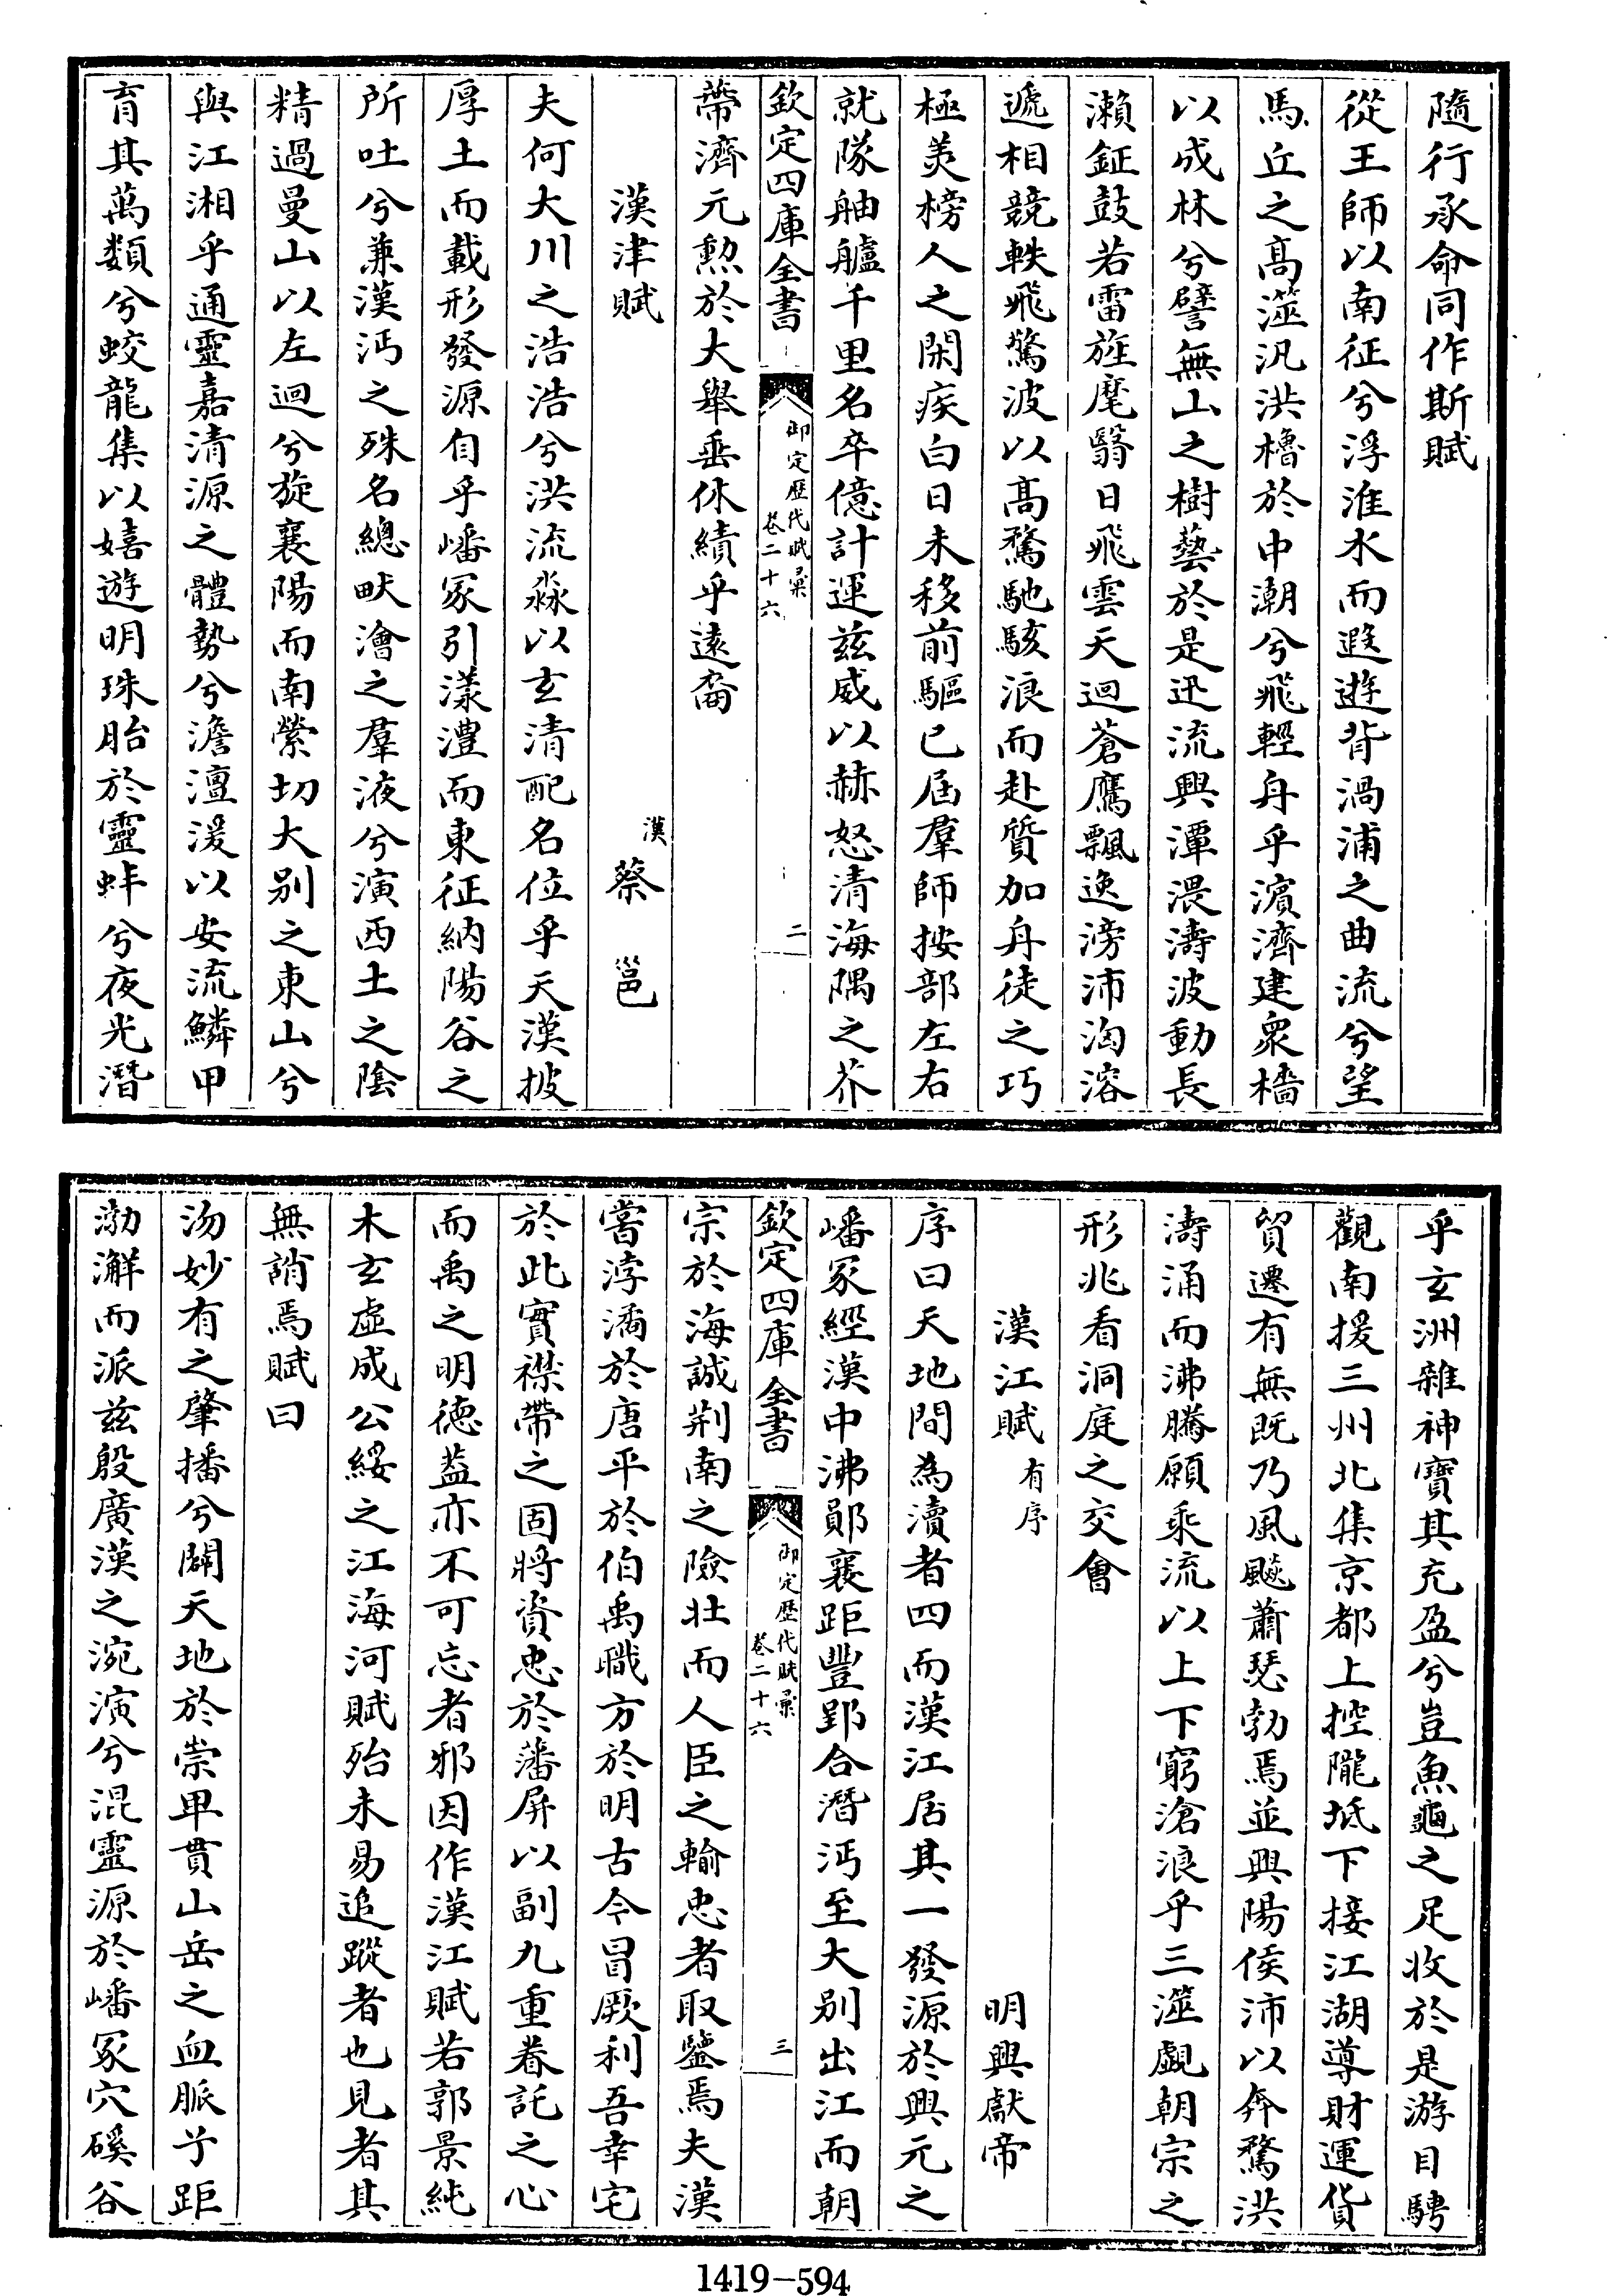 隨行承命同作斯賦
從王師以南征兮浮淮水而遐遊背渦浦之曲流兮望
馬丘之高澨汎洪櫓於中潮兮飛輕舟乎濵濟建衆檣
以成林兮譬無山之樹藝於是迅流興潭湋濤波動長
瀨鉦鼓若雷旌麾翳日飛雲天迴蒼鷹飄逸滂沛洶溶
遞相競軼飛驚波以高騖馳駭浪而赴質加舟徒之巧
極美榜人之閑疾白日未移前驅已届羣師按部左右
就隊舳艫千里名卒億計運兹威以赫怒清海隅之芥
欽定四庫全書
御定歴代賦彙
卷二十六
二
蔕濟元勲於大舉垂休績乎逺裔
漢津賦
漢 蔡 邕
夫何大川之浩浩兮洪流淼以玄清配名位乎天漢披
厚土而載形發源自乎嶓冢引漾澧而東征納陽谷之
所吐兮兼漢沔之殊名總畎澮之羣液兮演西土之陰
精過曼山以左迴兮旋襄陽而南縈切大别之東山兮
與江湘乎通靈嘉清源之體勢兮澹澶湲以安流鱗甲
育其萬類兮蛟龍集以嬉遊明珠胎於靈蚌兮夜光潛
乎玄洲雜神寶其充盈兮豈魚龜之足收於是游目騁
觀南援三州北集京都上控隴坻下接江湖導財運貨
貿遷有無既乃風飈蕭瑟勃焉並興陽侯沛以奔騖洪
濤涌而沸騰願乘流以上下窮滄浪乎三澨覷朝宗之
形兆看洞庭之交會
漢江賦 有序
明興獻帝
序曰天地間為瀆者四而漢江居其一發源於興元之
嶓冢經漢中沸鄖襄距豐郢合潛沔至大别出江而朝
欽定四庫全書
御定歴代賦彙
卷二十六
三
宗於海誠荆南之險壯而人臣之輸忠者取鑒焉夫漢
嘗浡潏於唐平於伯禹職方於明古今冒厥利吾幸宅
於此實襟帶之固將資忠於藩屏以副九重眷託之心
而禹之明德葢亦不可忘者邪因作漢江賦若郭景純
木玄虛成公綏之江海河賦殆未易追蹤者也見者其
無誚焉賦曰
沕妙有之肇播兮闢天地於崇卑貫山岳之血脈兮距
渤澥而派兹殷廣漢之涴演兮混靈源於嶓冢穴磎谷
1419-594